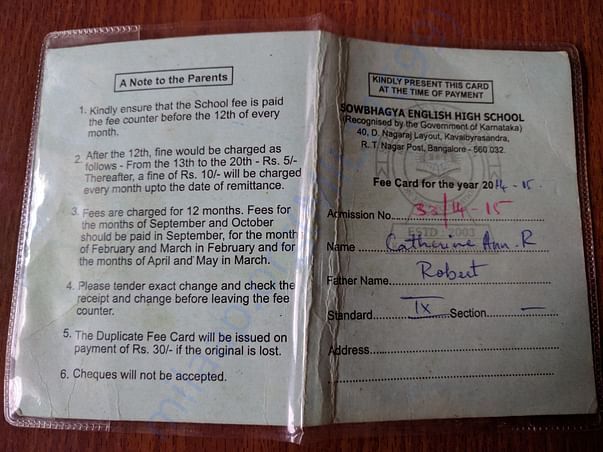 A Note to the Parents
1. Kindly ensure that the School fee is paid
the fee counter before the 12th of every
month.
2. After the 12th, fine would be charged as
follows - From the 13th to the 20th - Rs. 5/-
Thereafter, a fine of Rs. 10/- will be charged
every month upto the date of remittance.
3. Fees are charged for 12 months. Fees for
the months of September and October
should be paid in September, for the month
of February and March in February and for
the months of April and May in March.
4. Please tender exact change and check the
receipt and change before leaving the fee
counter.
5. The Duplicate Fee Card will be issued on
payment of Rs. 30/- if the original is lost.
6. Cheques will not be accepted.
KINDLY PRESENT THIS CARD
AT THE TIME OF PAYMENT
SOWBHAGYA ENGLISH HIGH SCHOOL
(Recognised by the Government of Karnataka)
40, D. Nagaraj Layout, Kavalbyrasandra,
R. T. Nagar Post, Bangalore - 560 032.
Fee Card for the year 2014 - 15.
Admission No. 33/14-15
ESTD 2003
Name Catherine Ann. R
Father Name Robert
Standard IX Section —
Address